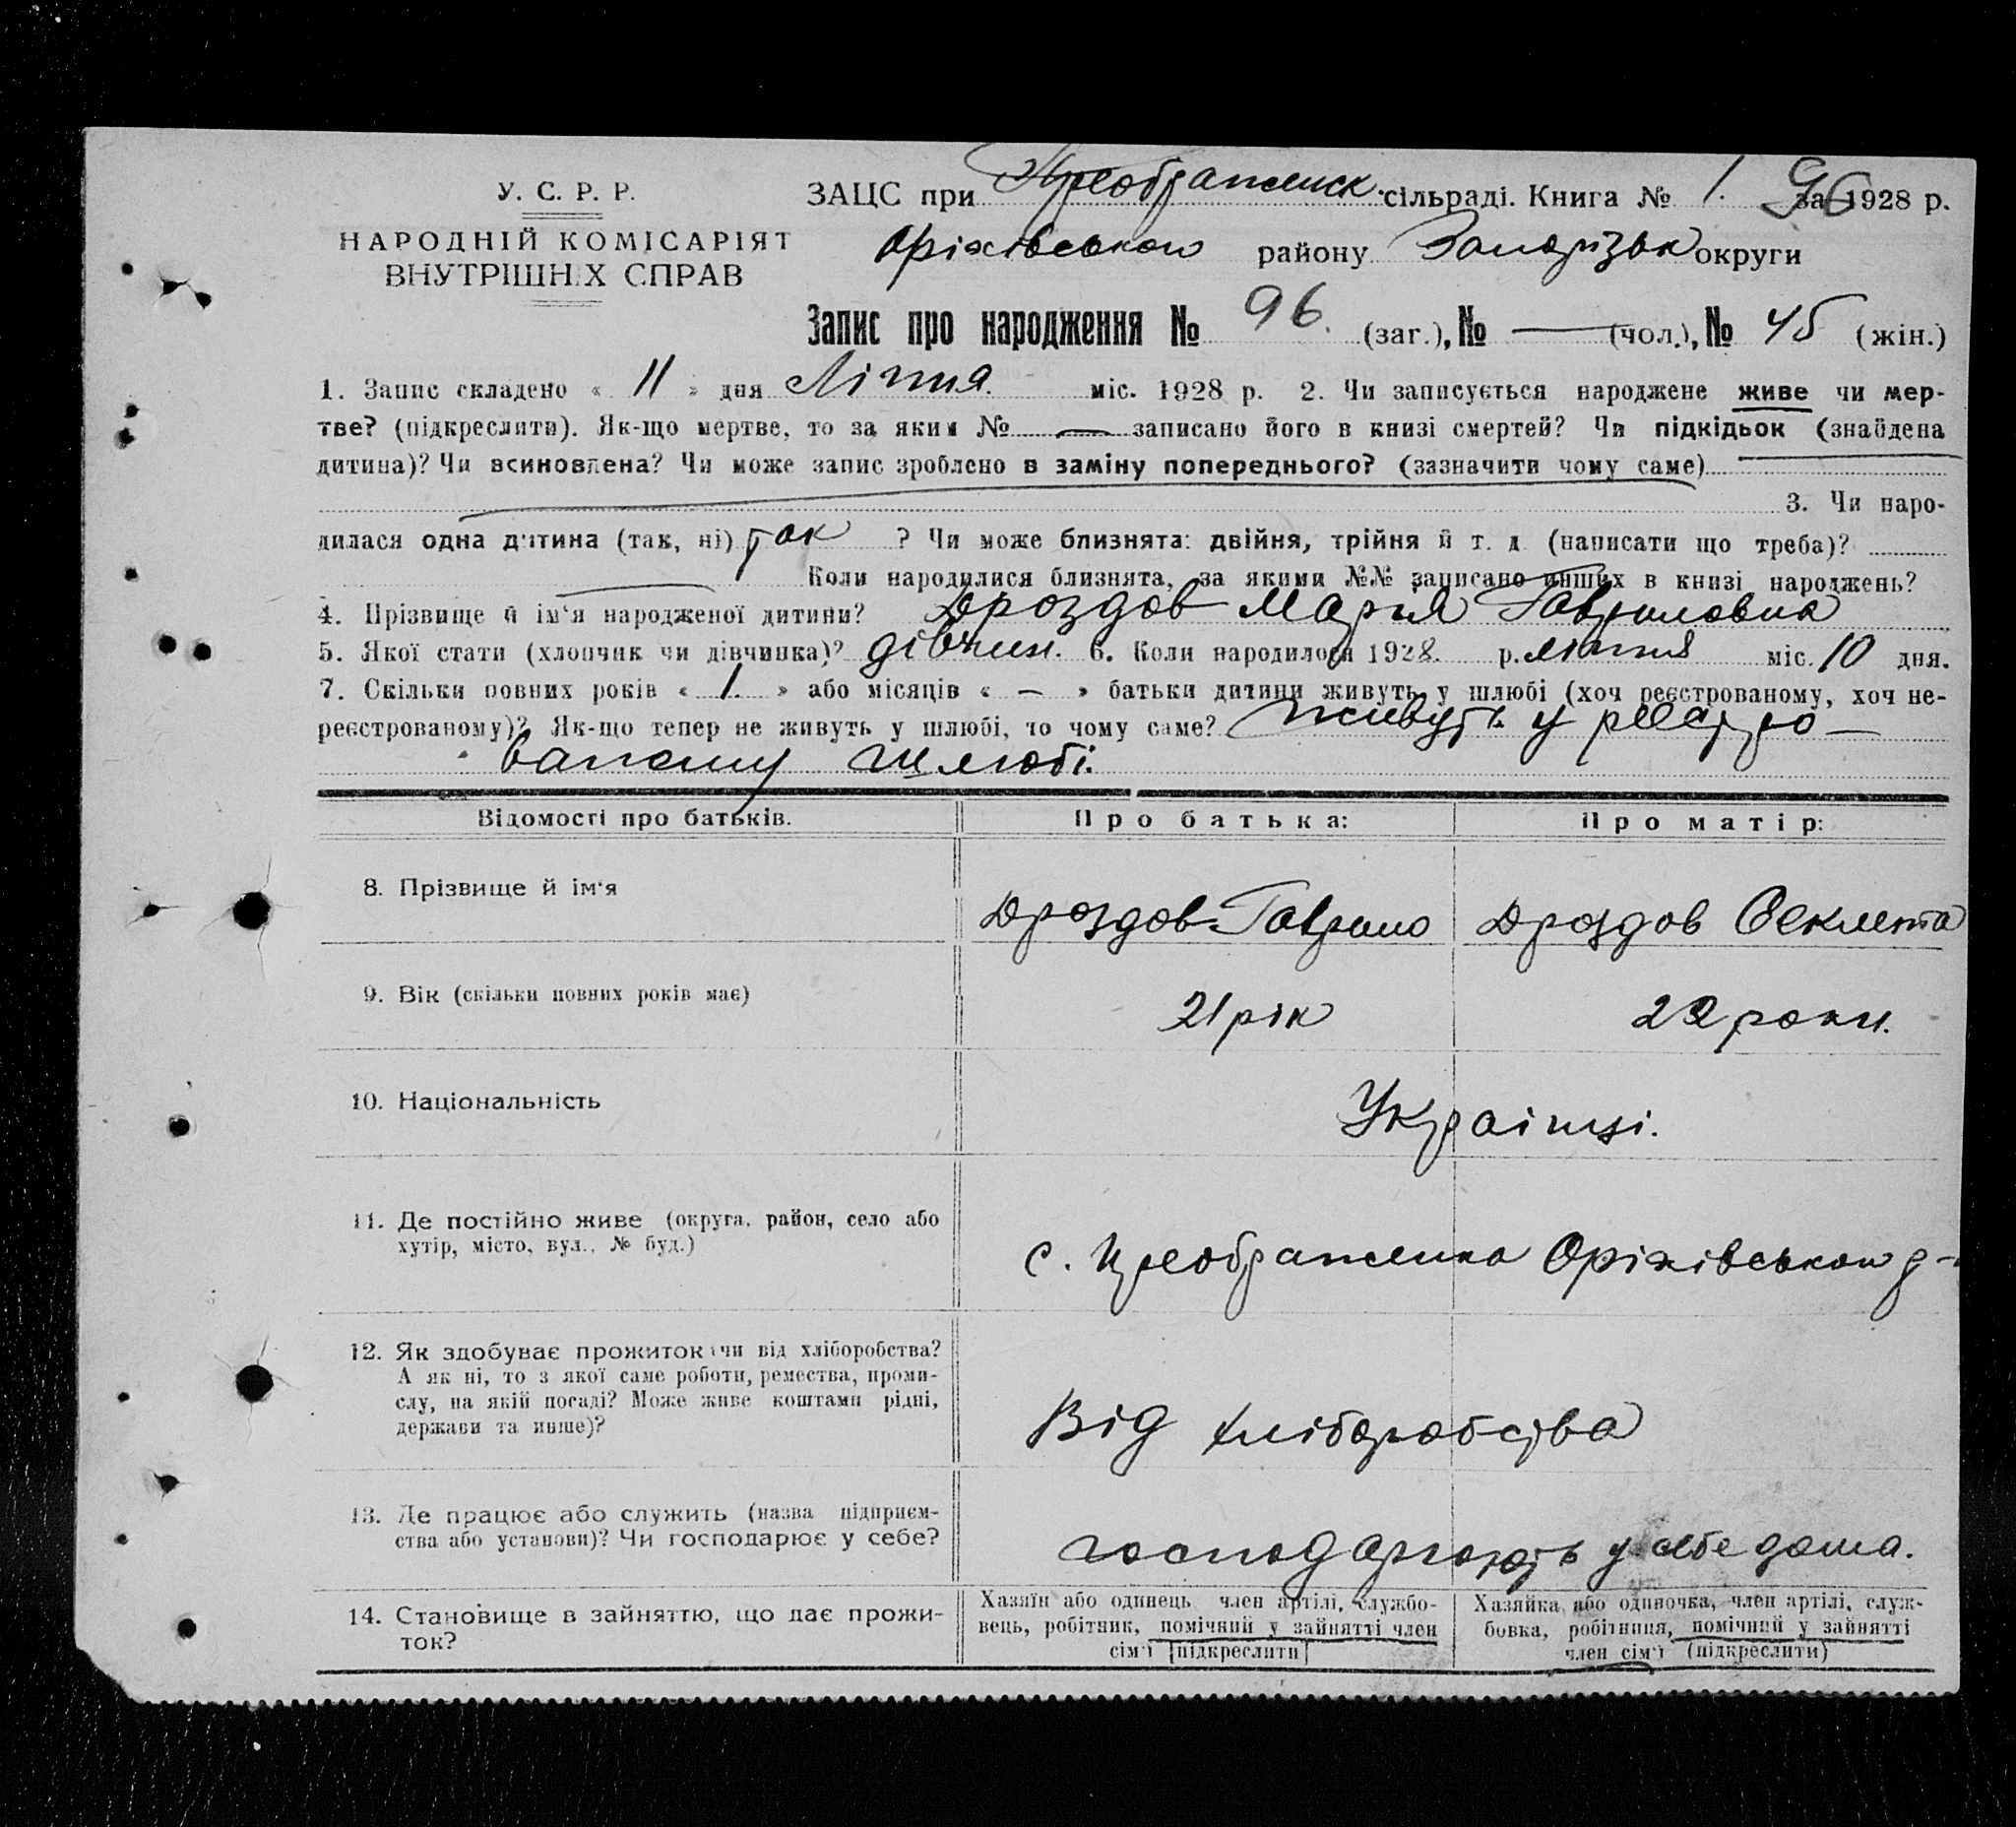 У. С. Р. Р.
НАРОДНІЙ КОМІСАРІЯТ
ВНУТРІШНІХ СПРАВ
ЗАЦС при Преображенск. сільраді. Книга № 1. за 1928 р.
96
Оріхівського району Запорізьк округи
Запис про народження № 96. (заг.), № — (чол.), № 45 (жін.)
1. Запис складено « 11 » дня Ліпня. міс. 1928 р. 2. Чи записується народжене живе чи мер-
тве? (підкреслити). Як-що мертве, то за яким № — записано його в книзі смертей? Чи підкідьок (знайдена
дитина)? Чи всиновлена? Чи може запис зроблено в заміну попереднього? (зазначити чому саме)
3. Чи наро-
дилася одна дитина (так, ні) так ? Чи може близнята: двійня, трійня й т. д. (написати що треба)?
Коли народилися близнята, за якими №№ записано инших в книзі народжень?
4. Прізвище й ім'я народженої дитини? Дроздов Мария Гавриловна
5. Якої стати (хлопчик чи дівчинка)? дівчин. 6. Коли народилося 1928. р. ліпня міс. 10 дня.
7. Скільки повних років « 1. » або місяців « — » батьки дитини живуть у шлюбі (хоч реєстрованому, хоч не-
реєстрованому)? Як-що тепер не живуть у шлюбі, то чому саме? живуть у реєстро-
ваному шлюбі.
Відомості про батьків.
Про батька:
Про матір:
8. Прізвище й ім'я
Дроздов Гаврило
Дроздов Секлета
9. Вік (скільки повних років має)
21 рік
22 роки.
10. Національність
Українці.
11. Де постійно живе (округа, район, село або
хутір, місто, вул., № буд.)
с. Преображенка Оріхівського р-
12. Як здобуває прожиток (чи від хліборобства?
А як ні, то з якої саме роботи, ремества, проми-
слу, на якій посаді? Може живе коштами рідні,
держави та инше)?
Від хліборобства
13. Де працює або служить (назва підприєм-
ства або установи)? Чи господарює у себе?
господарюють у себе дома.
14. Становище в зайняттю, що дає прожи-
ток?
Хазяїн або одинець член артілі, службо-
вець, робітник, помічний у зайнятті член
сім'ї (підкреслити)
Хазяйка або одиночка, член артілі, служ-
бовка, робітниця, помічний у зайнятті
член сім'ї (підкреслити)